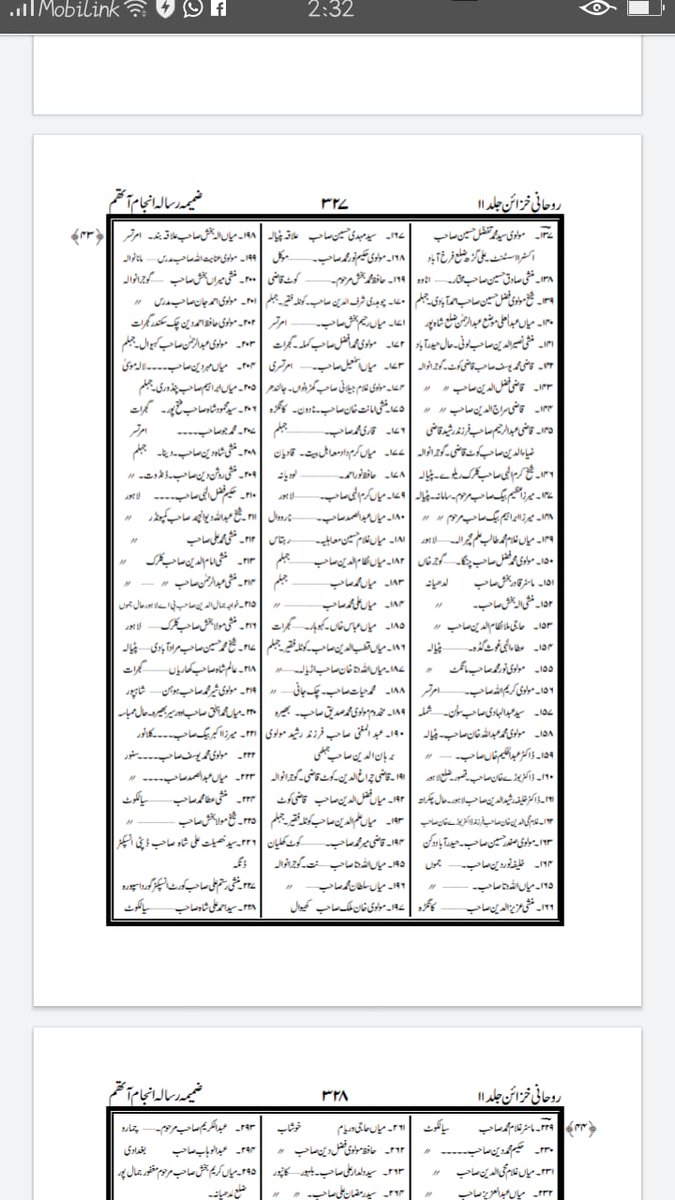 Mobilink
2:32
روحانی خزائن جلد ۱۱
۳۲۷
ضمیمہ رسالہ انجام آتھم
﴿۴۳﴾
۱۳۷۔ مولوی سید محمد تفضل حسین صاحب
اکسٹرا اسسٹنٹ۔ علی گڑھ ضلع فرخ آباد
۱۳۸۔ منشی صادق حسین صاحب مختار۔ اٹاوہ
۱۳۹۔ شیخ مولوی فضل حسین صاحب احمد آبادی۔ جہلم
۱۴۰۔ میاں عبدالعلی موضع عبدالرحمٰن ضلع شاہ پور
۱۴۱۔ منشی نصیرالدین صاحب لونی۔ حال حیدر آباد
۱۴۲۔ قاضی محمد یوسف صاحب قاضی کوٹ۔ گوجرانوالہ
۱۴۳۔ قاضی فضل الدین صاحب ٫٫ ٫٫
۱۴۴۔ قاضی سراج الدین صاحب ٫٫ ٫٫
۱۴۵۔ قاضی عبدالرحیم صاحب فرزند رشید قاضی
ضیاء الدین صاحب کوٹ قاضی۔ گوجرانوالہ
۱۴۶۔ شیخ کرم الٰہی صاحب کلرک ریلوے۔ پٹیالہ
۱۴۷۔ میرزا عظیم بیگ صاحب مرحوم۔ سامانہ۔ پٹیالہ
۱۴۸۔ میرزا ابراہیم بیگ صاحب مرحوم ٫٫ ٫٫
۱۴۹۔ میاں غلام محمد طالب علم مچھرالہ۔۔ لاہور
۱۵۰۔ مولوی محمد فضل صاحب چنگا۔ گوجر خاں
۱۵۱۔ ماسٹر قادر بخش صاحب لدھیانہ
۱۵۲۔ منشی اللہ بخش صاحب۔ ٫٫
۱۵۳۔ حاجی ملا نظام الدین صاحب ٫٫
۱۵۴۔ عطاء الٰہی غوث گڈہ۔ پٹیالہ
۱۵۵۔ مولوی نور محمد صاحب مانگٹ ٫٫
۱۵۶۔ مولوی کریم اللہ صاحب۔ امرتسر
۱۵۷۔ سید عبدالہادی صاحب سولن۔ شملہ
۱۵۸۔ مولوی محمد عبداللہ خان صاحب۔ پٹیالہ
۱۵۹۔ ڈاکٹر عبدالحکیم خاں صاحب۔ ٫٫
۱۶۰۔ ڈاکٹر بوڑے خان صاحب۔ قصور ضلع لاہور
۱۶۱۔ ڈاکٹر خلیفہ رشید الدین صاحب لاہور۔ حال چکراتہ
۱۶۲۔ غلام محی الدین خان صاحب فرزند ڈاکٹر بوڑے خان صاحب
۱۶۳۔ مولوی صفدر حسین صاحب۔ حیدر آباد دکن
۱۶۴۔ خلیفہ نور دین صاحب۔ جموں
۱۶۵۔ میاں اللہ دتا صاحب۔ ٫٫
۱۶۶۔ منشی عزیز الدین صاحب کانگڑہ
۱۶۷۔ سید مہدی حسین صاحب علاقہ پٹیالہ
۱۶۸۔ مولوی حکیم نور محمد صاحب۔ موکل
۱۶۹۔ حافظ محمد بخش مرحوم۔ کوٹ قاضی
۱۷۰۔ چوہدری شرف الدین صاحب۔ کوٹلہ فقیر۔ جہلم
۱۷۱۔ میاں رحیم بخش صاحب۔ امرتسر
۱۷۲۔ مولوی محمد افضل صاحب کملہ۔ گجرات
۱۷۳۔ میاں اسمٰعیل صاحب۔ امرتسری
۱۷۴۔ مولوی غلام جیلانی صاحب گھڑونواں۔ جالندھر
۱۷۵۔ منشی امانت خان صاحب۔ نادون۔ کانگڑہ
۱۷۶۔ قاری محمد صاحب۔ جہلم
۱۷۷۔ میاں کرم داد معہ اہل بیت۔ قادیان
۱۷۸۔ حافظ نور احمد۔ لودیانہ
۱۷۹۔ میاں کرم الٰہی صاحب۔ لاہور
۱۸۰۔ میاں عبدالصمد صاحب۔ نارووال
۱۸۱۔ میاں غلام حسین معہ اہلیہ۔ رہتاس
۱۸۲۔ میاں نظام الدین صاحب جہلم
۱۸۳۔ میاں محمد صاحب۔ جہلم
۱۸۴۔ میاں علی محمد صاحب۔ ٫٫
۱۸۵۔ میاں عباس خاں۔ کہوہار۔ گجرات
۱۸۶۔ میاں قطب الدین صاحب۔ کوٹلہ فقیر۔ جہلم
۱۸۷۔ میاں اللہ دتا خان صاحب اڑیالہ۔ ٫٫
۱۸۸۔ محمد حیات صاحب۔ چک جانی ٫٫
۱۸۹۔ مخدوم مولوی محمد صدیق صاحب۔ بھیرہ
۱۹۰۔ عبدالمغنی صاحب فرزند رشید مولوی
برہان الدین صاحب جہلمی
۱۹۱۔ قاضی چراغ الدین۔ کوٹ قاضی۔ گوجرانوالہ
۱۹۲۔ میاں فضل الدین صاحب قاضی کوٹ
۱۹۳۔ میاں علم الدین صاحب کوٹلہ فقیر۔ جہلم
۱۹۴۔ قاضی میر محمد صاحب۔ کوٹ کھلیان
۱۹۵۔ میاں اللہ دتا صاحب۔ نت۔ گوجرانوالہ
۱۹۶۔ میاں سلطان محمد صاحب۔ ٫٫
۱۹۷۔ مولوی خان ملک صاحب کھیوال
۱۹۸۔ میاں الہ بخش صاحب علاقہ بند۔ امرتسر
۱۹۹۔ مولوی عنایت اللہ صاحب مدرس مانانوالہ
۲۰۰۔ منشی میراں بخش صاحب گوجرانوالہ
۲۰۱۔ مولوی احمد جان صاحب مدرس ٫٫
۲۰۲۔ مولوی حافظ احمد دین چک سکندر گجرات
۲۰۳۔ مولوی عبدالرحمٰن صاحب کہیوال۔ جہلم
۲۰۴۔ میاں مہر دین صاحب۔۔۔ لالہ موسیٰ
۲۰۵۔ میاں ابراہیم صاحب پنڈوری۔ جہلم
۲۰۶۔ سید محمود شاہ صاحب فتح پور۔ گجرات
۲۰۷۔ محمد جو صاحب۔۔۔ امرتسر
۲۰۸۔ منشی شاہ دین صاحب۔ دینا۔ جہلم
۲۰۹۔ منشی روشن دین صاحب۔ ڈنڈوت۔ ٫٫
۲۱۰۔ حکیم فضل الٰہی صاحب۔۔۔ لاہور
۲۱۱۔ شیخ عبداللہ دیوانچند صاحب کمپونڈر ٫٫
۲۱۲۔ منشی محمد علی صاحب ٫٫
۲۱۳۔ منشی امام الدین صاحب کلرک ٫٫
۲۱۴۔ منشی عبدالرحمٰن صاحب ٫٫ ٫٫
۲۱۵۔ خواجہ جمال الدین صاحب بی اے لاہور حال جموں
۲۱۶۔ منشی مولا بخش صاحب کلرک لاہور
۲۱۷۔ شیخ محمد حسین صاحب مراد آبادی۔ پٹیالہ
۲۱۸۔ عالم شاہ صاحب کھاریاں گجرات
۲۱۹۔ مولوی شیر محمد صاحب ہوہن شاہپور
۲۲۰۔ میاں محمد اسحٰق صاحب اوورسیر بھیرہ۔ حال ممباسہ
۲۲۱۔ میرزا اکبر بیگ صاحب۔۔۔ کلانور
۲۲۲۔ مولوی محمد یوسف صاحب۔۔۔ سنور
۲۲۳۔ میاں عبدالصمد صاحب۔۔۔ ٫٫
۲۲۴۔ منشی عطا محمد صاحب سیالکوٹ
۲۲۵۔ شیخ مولا بخش صاحب ٫٫
۲۲۶۔ سید خصیلت علی شاہ صاحب ڈپٹی انسپکٹر
ڈنگہ
۲۲۷۔ منشی رستم علی صاحب کورٹ انسپکٹر گورداسپورہ
۲۲۸۔ سید احمد علی شاہ صاحب سیالکوٹ
روحانی خزائن جلد ۱۱
۳۲۸
ضمیمہ رسالہ انجام آتھم
﴿۴۴﴾
۲۲۹۔ ماسٹر غلام محمد صاحب سیالکوٹ
۲۳۰۔ حکیم محمد دین صاحب۔۔۔ ٫٫
۲۳۱۔ میاں غلام محی الدین صاحب ٫٫
۲۳۲۔ میاں عبدالعزیز صاحب ٫٫
۲۶۱۔ میاں حاجی وریام خوشاب
۲۶۲۔ حافظ مولوی فضل دین صاحب ٫٫
۲۶۳۔ سید دلدار علی صاحب۔ بلہور۔ کانپور
۲۶۴۔ سید رمضان علی صاحب۔ ٫٫ ٫٫
۲۹۳۔ عبدالکریم صاحب مرحوم۔ چمارو
۲۹۴۔ عبدالوہاب صاحب بغدادی
۲۹۵۔ میاں کریم بخش صاحب مرحوم مغفور جمال پور
ضلع لدھیانہ۔